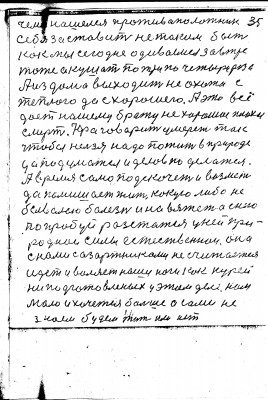 чем нашелся противаположник 35
себя заставит не таким быт
как мы сегодне одиваемся завтре
тоже а кушат по три по четыри раза
А из дома выходит не охота с
теплого да с хорошего. А это всё
дает нашему брату не хорошии
смерт. Нра говорит умереть так
чтобы незя надо пожит в природе
да подумался и делов то делается.
А время само подскочет и возмет
да помишает жит, какую либо не
бывалую болезн и навяжет а с нею
попробуй растатся у ней при-
родной силы естественной, она
с нами с азартниками не считается
идет и воляет нашу ноги как курей
ни подготовленых у этом деле, нам
мало и хочется больше а сами не
знаем будем жит или нет